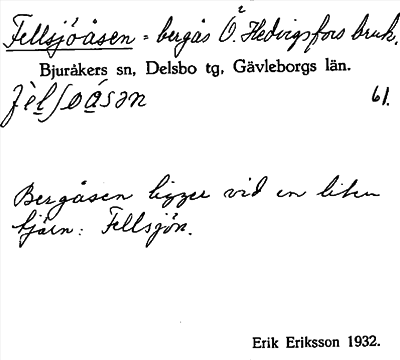 Fellsjöåsen = bergås Ö. Hedvigsfors bruk.
Bjuråkers sn, Delsbo tg, Gävleborgs län.
61.
Bergåsen ligger vid en liten
tjärn: Fellsjön.
Erik Eriksson 1932.